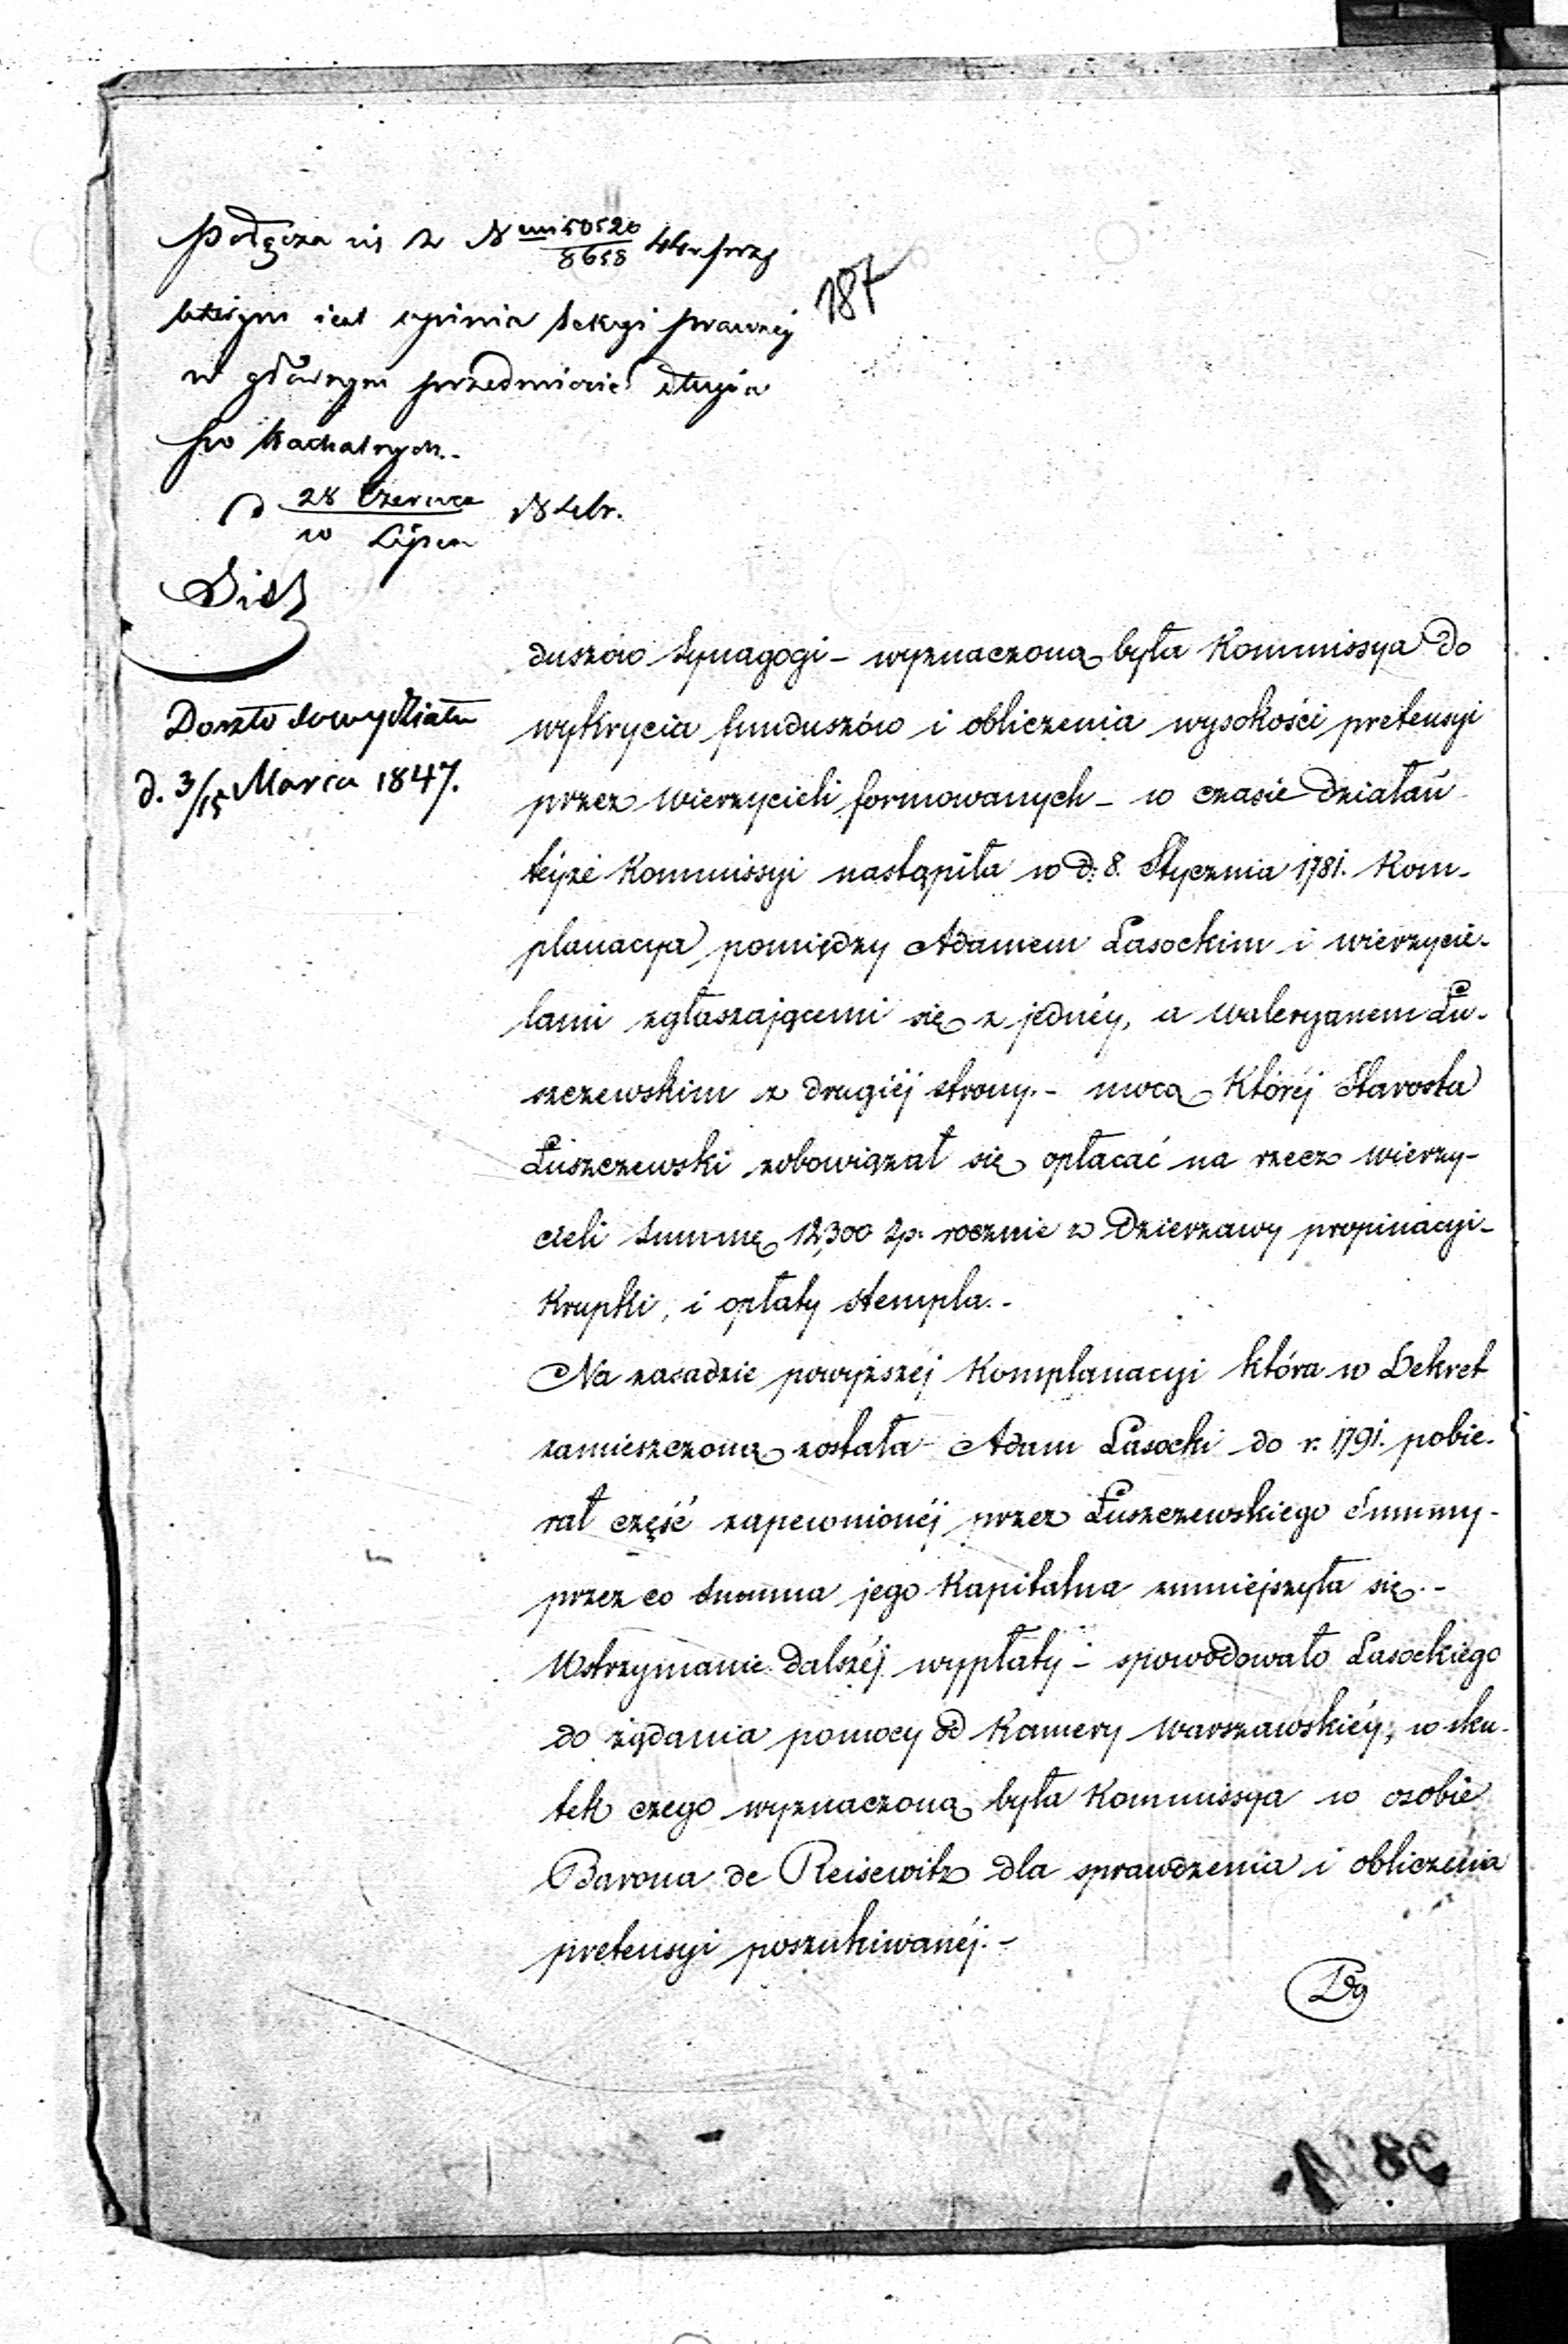 Dołącza się z N 50520/8658 44 r. przy
którym jest opinia Sekcyi prawnej
w głównym przedmiocie długów
po Kachalnych.
d 28 Czerwca/10 Lipca 184 r.
187
Doszło do wydziału
d. 3/15 Marca 1847.
duszów Synagogi – wyznaczoną była Kommissya do
wykrycia funduszów i obliczenia wysokości pretensyi
przez wierzycieli formowanych – w czasie działań
téjże Kommissyi nastąpiła w d: 8. Stycznia 1781. Kom-
planacya pomiędzy Adamem Lasockim i wierzycie-
lami zgłaszającemi się z jednéy, a Waleryanem Łu-
szczewskim z drugiéj strony. – mocą któréj Starosta
Łuszczewski zobowiązał się opłacać na rzecz wierzy-
cieli Summę 12,300 zp. rocznie z Dzierzawy propinacyi –
Krupki, i opłaty stempla. –
Na zasadzie powyższéj Komplanacyi która w Dekret
zamieszczoną została Adam Lasocki do r. 1791. pobie-
rał część zapewnionéj przez Łuszczewskiego Summy –
przez co Summa jego Kapitalna zmniejszyła się. –
Wstrzymanie dalszéj wypłaty – spowodowało Lasockiego
do żądania pomocy od Kamery Warszawskiéy, w sku-
tek czego wyznaczoną była Kommissya w osobie
Barona de Reisewitz dla sprawdzenia i obliczenia
pretensyi poszukiwanéj. –